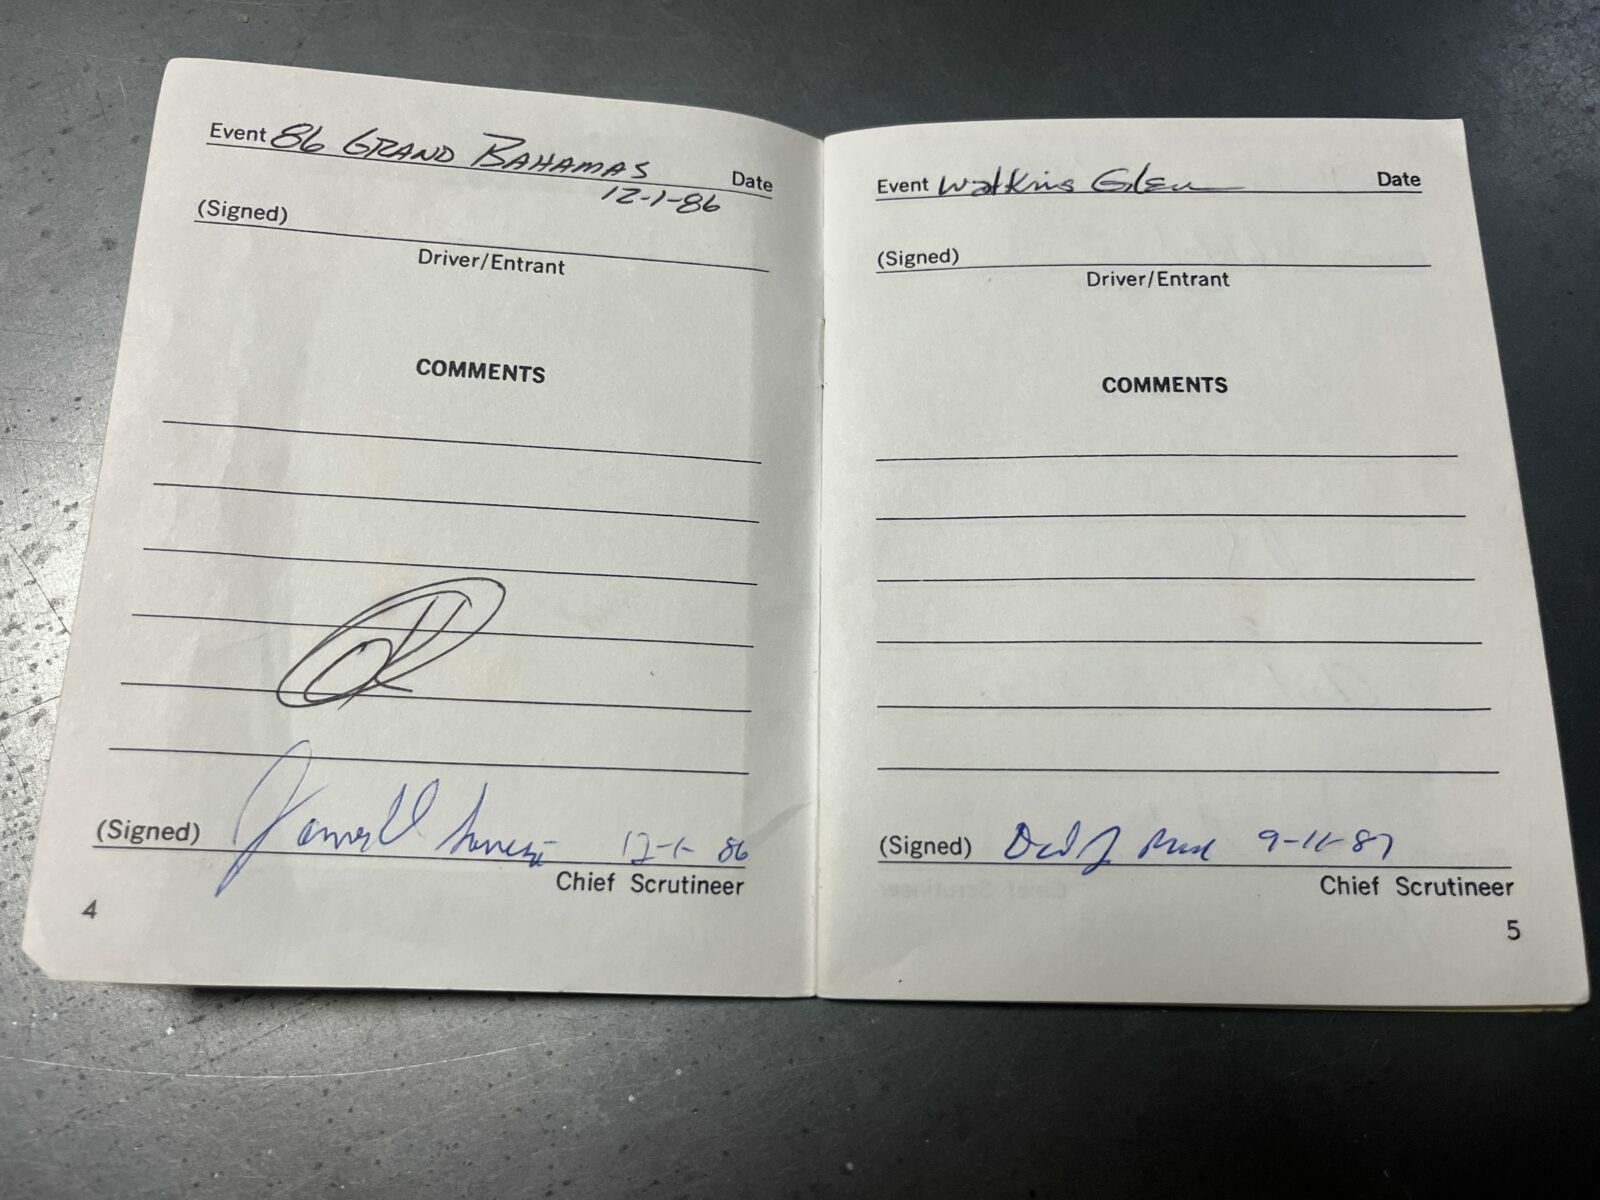 Event 86 GRAND BAHAMAS Date
12-1-86
(Signed)
Driver/Entrant
COMMENTS
(Signed) 12-1-86
Chief Scrutineer
4
Event Watkins Glen Date
(Signed)
Driver/Entrant
COMMENTS
(Signed) 9-11-87
Chief Scrutineer
5